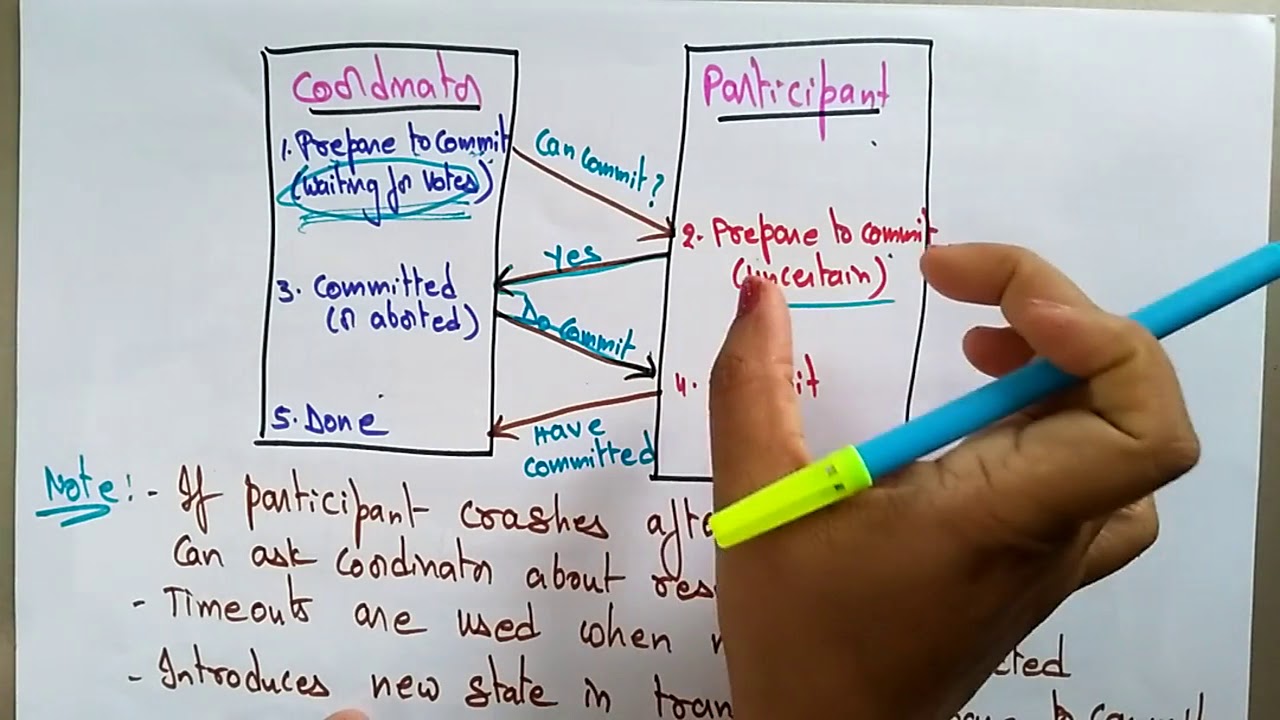 Coordinator
1. Prepare to commit
(waiting for votes)
3. Committed
(or aborted)
5. Done
Can commit?
Yes
Do commit
Have
committed
Participant
2. Prepare to commit
(uncertain)
4.
Note:- If participant crashes
Can ask Coordinator about
- Timeouts are used when
- Introduces new state in to commit